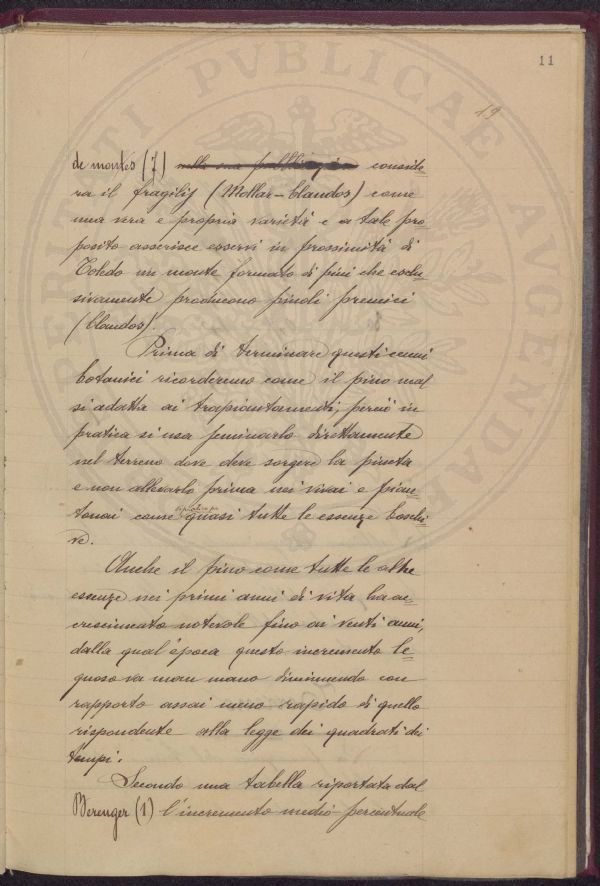 PERITI PVBLICAE AVGENDAE
11
19
de montès (7) nella sua pubblicazione conside=
ra il fragilis (Mollar-blandos) come
una vera e propria varietà e a tale pro=
posito asserisce esservi in prossimità di
Toledo un monte formato di pini che esclu=
sivamente producono pinoli premici
(blandos).
Prima di terminare questi cenni
botanici ricorderemo come il pino mal
si adatta ai trapiantamenti, perciò in
pratica si usa seminarlo direttamente
nel terreno dove deve sorgere la pineta
e non allevarlo prima nei vivai e pian=
tonai come quasi tutte le essenze boschi=
ve.
Anche il pino come tutte le altre
essenze nei primi anni di vita ha ac=
crescimento notevole fino ai venti anni,
dalla qual'epoca questo incremento le=
gnoso va man mano diminuendo con
rapporto assai meno rapido di quello
rispondente alla legge dei quadrati dei
tempi.
Secondo una tabella riportata dal
Berenger (1) l'incremento medio percentuale